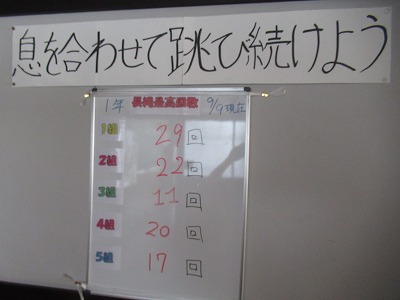 息を合わせて跳び続けよう
1年 長縄最高回数 9/9現在
1組 29回
2組 22回
3組 11回
4組 20回
5組 17回